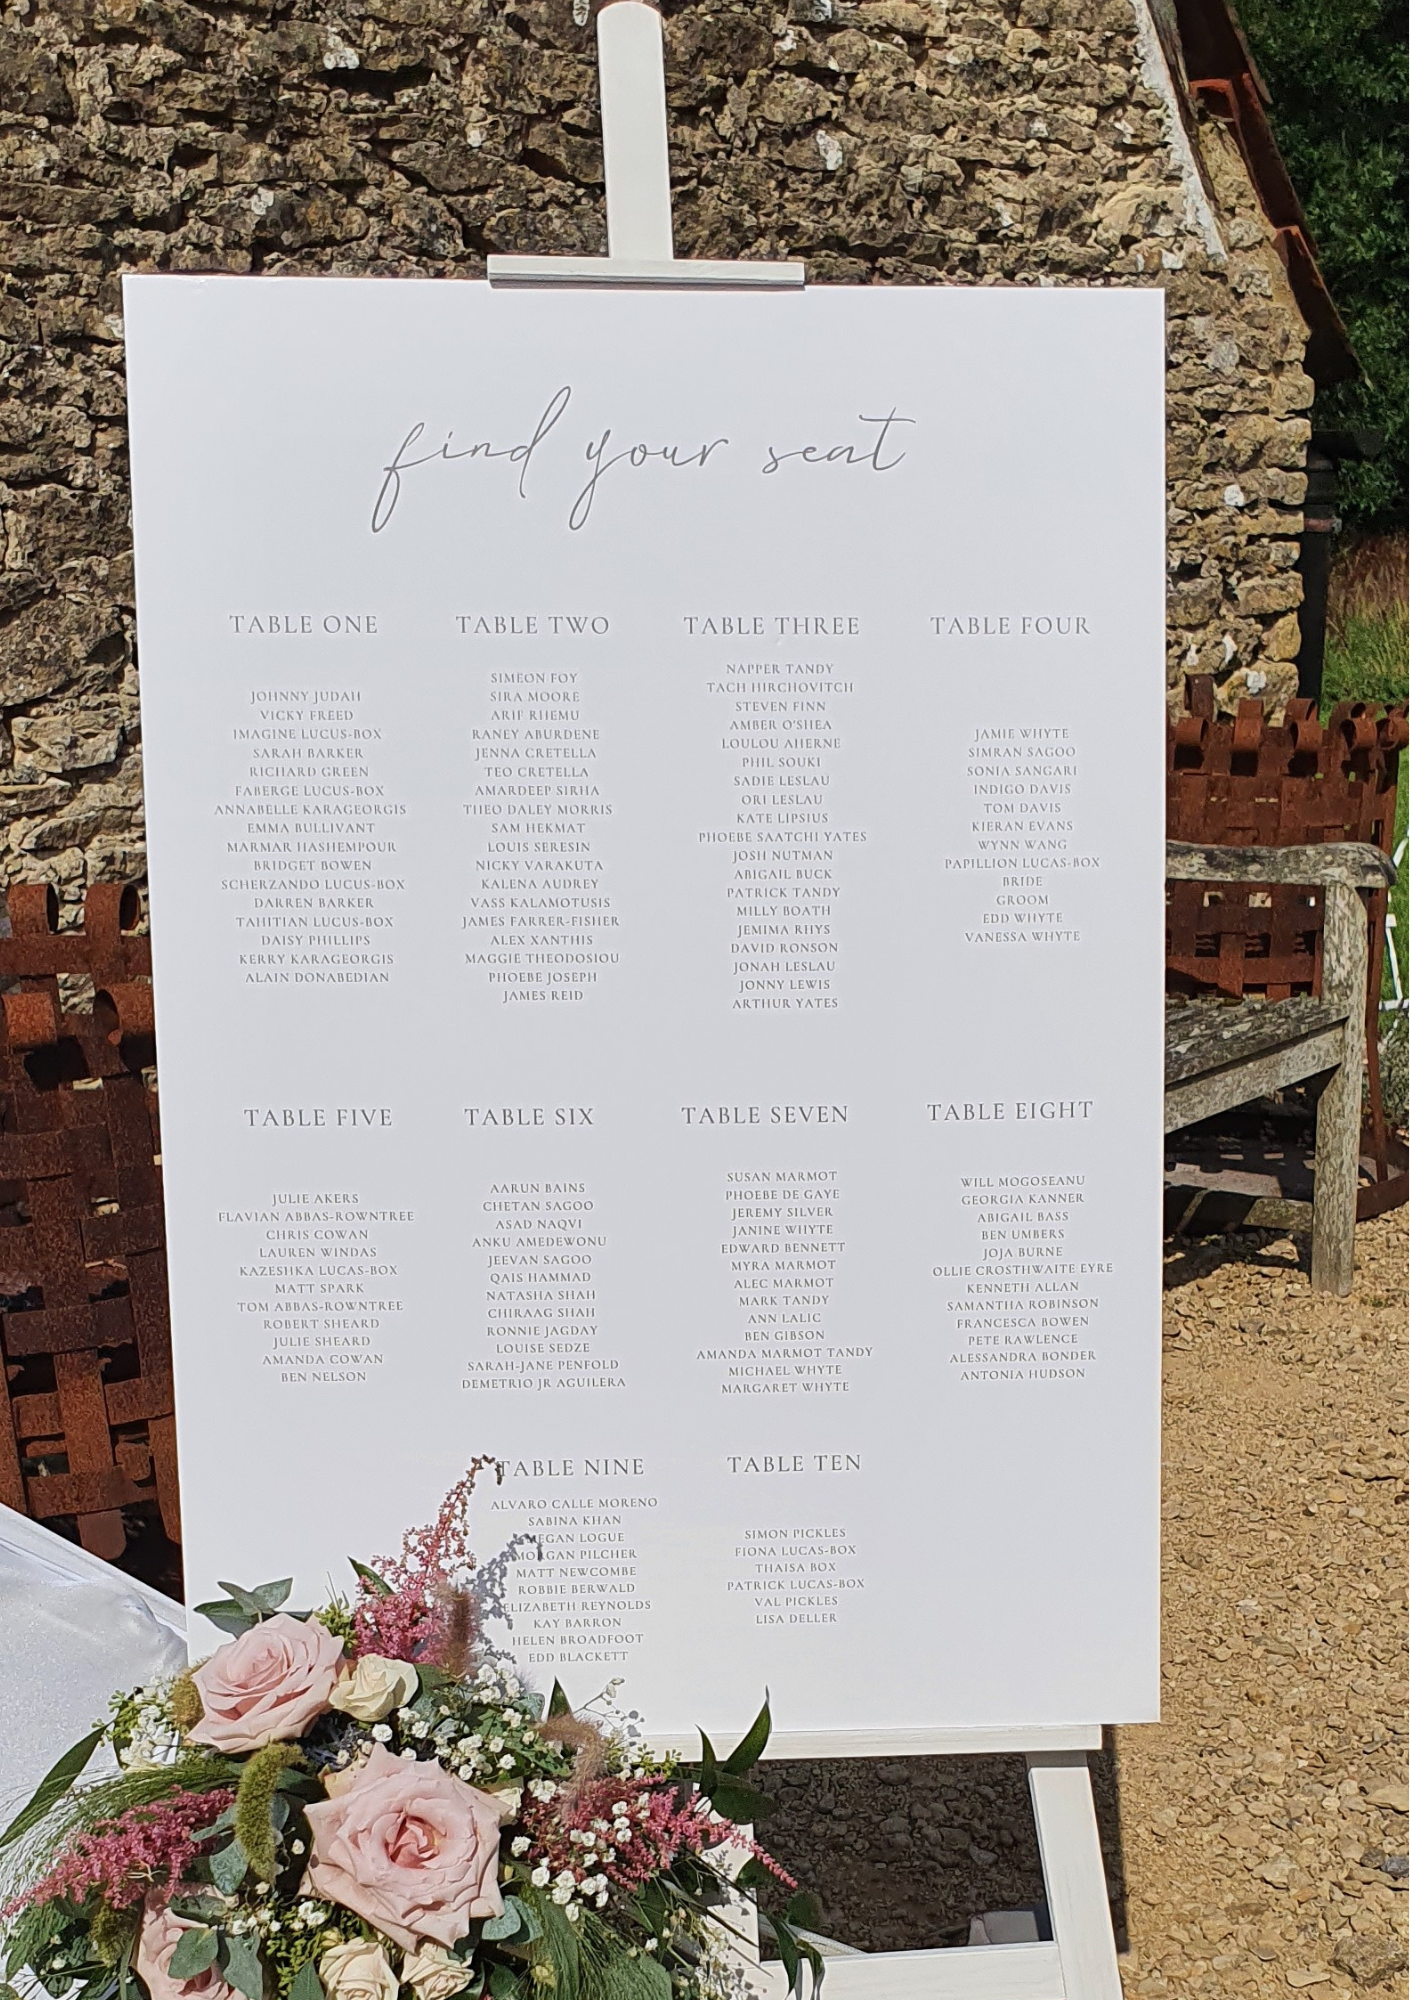 find your seat
TABLE ONE
JOHNNY JUDAH
VICKY FREED
IMAGINE LUCUS-BOX
SARAH BARKER
RICHARD GREEN
FABERGE LUCUS-BOX
ANNABELLE KARAGEORGIS
EMMA BULLIVANT
MARMAR HASHEMPOUR
BRIDGET BOWEN
SCHERZANDO LUCUS-BOX
DARREN BARKER
TAHITIAN LUCUS-BOX
DAISY PHILLIPS
KERRY KARAGEORGIS
ALAIN DONABEDIAN
TABLE TWO
SIMEON FOY
SIRA MOORE
ARIF RHEMU
RANEY ABURDENE
JENNA CRETELLA
TEO CRETELLA
AMARDEEP SIRHA
THEO DALEY MORRIS
SAM HEKMAT
LOUIS SERESIN
NICKY VARAKUTA
KALENA AUDREY
VASS KALAMOTUSIS
JAMES FARRER-FISHER
ALEX XANTHIS
MAGGIE THEODOSIOU
PHOEBE JOSEPH
JAMES REID
TABLE THREE
NAPPER TANDY
TACH HIRCHOVITCH
STEVEN FINN
AMBER O'SHEA
LOULOU AHERNE
PHIL SOUKI
SADIE LESLAU
ORI LESLAU
KATE LIPSIUS
PHOEBE SAATCHI YATES
JOSH NUTMAN
ABIGAIL BUCK
PATRICK TANDY
MILLY BOATH
JEMIMA RHYS
DAVID RONSON
JONAH LESLAU
JONNY LEWIS
ARTHUR YATES
TABLE FOUR
JAMIE WHYTE
SIMRAN SAGOO
SONIA SANGARI
INDIGO DAVIS
TOM DAVIS
KIERAN EVANS
WYNN WANG
PAPILLION LUCAS-BOX
BRIDE
GROOM
EDD WHYTE
VANESSA WHYTE
TABLE FIVE
JULIE AKERS
FLAVIAN ABBAS-ROWNTREE
CHRIS COWAN
LAUREN WINDAS
KAZESHKA LUCAS-BOX
MATT SPARK
TOM ABBAS-ROWNTREE
ROBERT SHEARD
JULIE SHEARD
AMANDA COWAN
BEN NELSON
TABLE SIX
AARUN BAINS
CHETAN SAGOO
ASAD NAQVI
ANKU AMEDEWONU
JEEVAN SAGOO
QAIS HAMMAD
NATASHA SHAH
CHIRAAG SHAH
RONNIE JAGDAY
LOUISE SEDZE
SARAH-JANE PENFOLD
DEMETRIO JR AGUILERA
TABLE SEVEN
SUSAN MARMOT
PHOEBE DE GAYE
JEREMY SILVER
JANINE WHYTE
EDWARD BENNETT
MYRA MARMOT
ALEC MARMOT
MARK TANDY
ANN LALIC
BEN GIBSON
AMANDA MARMOT TANDY
MICHAEL WHYTE
MARGARET WHYTE
TABLE EIGHT
WILL MOGOSEANU
GEORGIA KANNER
ABIGAIL BASS
BEN UMBERS
JOJA BURNE
OLLIE CROSTHWAITE EYRE
KENNETH ALLAN
SAMANTHA ROBINSON
FRANCESCA BOWEN
PETE RAWLENCE
ALESSANDRA BONDER
ANTONIA HUDSON
TABLE NINE
ALVARO CALLE MORENO
SABINA KHAN
MEGAN LOGUE
MORGAN PILCHER
MATT NEWCOMBE
ROBBIE BERWALD
ELIZABETH REYNOLDS
KAY BARRON
HELEN BROADFOOT
EDD BLACKETT
TABLE TEN
SIMON PICKLES
FIONA LUCAS-BOX
THAISA BOX
PATRICK LUCAS-BOX
VAL PICKLES
LISA DELLER